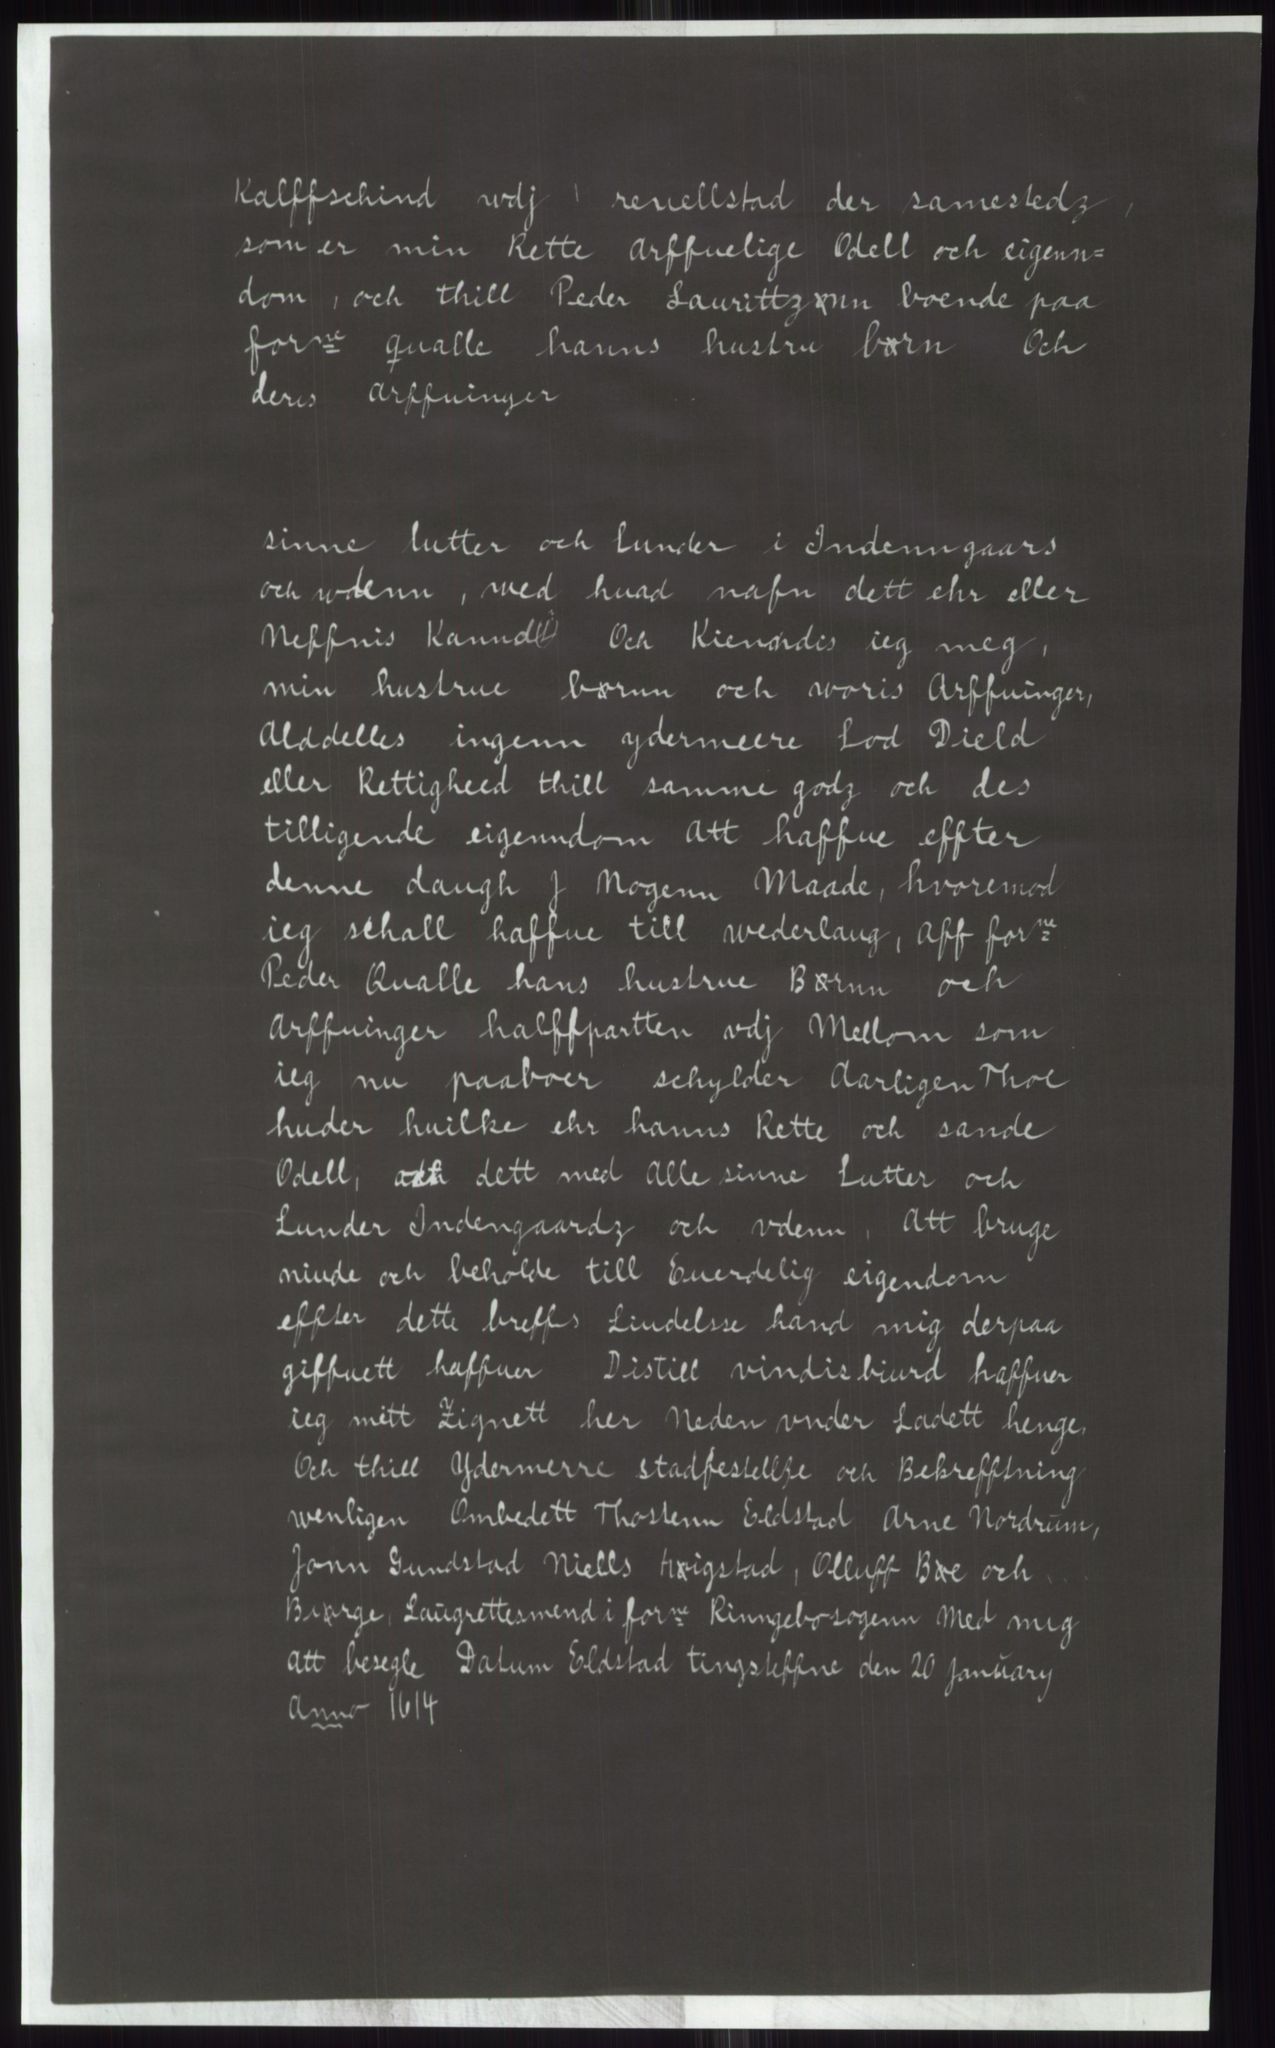 Kalffschind wdj renellstad der samestedz,
som er min Rette Arffuelige Odell och eigenn=
dom, och thill Peder Laurittzønn boende paa
forne qualle hanns hustru børn Och
deris Arffuinger
sinne lutter och lunder i Indenngaars
och wdenn, med huad nafn dett ehr eller
Neffnis Kannd Och Kiendis ieg meg,
min hustrue børnn och woris Arffuinger,
Alddelles ingenn ydermeere Lod Dield
eller Rettigheed thill samme godz och des
tilligende eigenndom Att haffue effter
denne daugh J Nogenn Maade, hvoremod
ieg schall haffue till wederlaug, Aff forne
Peder Qualle hans hustrue Børnn och
Arffuinger halffpartten vdj Mellom som
ieg nu paaboer schylder Aarligen Thoe
huder huilke ehr hanns Rette och sande
Odell, och dett med Alle sinne Lutter och
Lunder Indengaardz och vdenn, Att bruge
niude och beholde till Euerdelig eigendom
effter dette breffs Liudelsse hand mig derpaa
giffuett haffuer Distill vindisbiurd haffuer
ieg mitt Zignett her Neden vnder Ladett henge,
Och thill Ydermerre stadfestellse och Bekrefftning
wenligen Ombedett Thostenn Eldstad Arne Nordrŭm,
Jonn Gundstad Niells Høigstad, Olluff Bøe och
Biørge, Laŭgrettesmend i forne Ringebosogenn Med mig
Att besegle Datum Eldstad tingsteffne den 20 Janŭary
Anno 1614